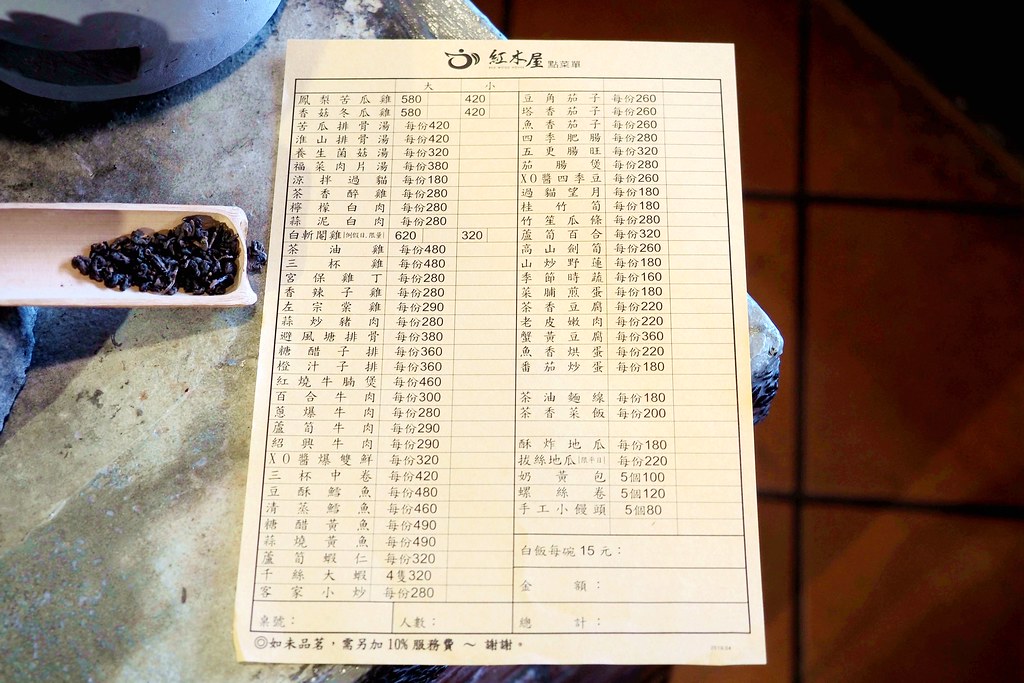 紅木屋 點菜單
大 小
鳳梨苦瓜雞 580 420
香菇冬瓜雞 580 420
苦瓜排骨湯 每份420
淮山排骨湯 每份420
養生菌菇湯 每份320
福菜肉片湯 每份380
涼拌過貓 每份180
茶香醉雞 每份280
檸檬白肉 每份280
蒜泥白肉 每份280
白斬閹雞[例假日.限量] 620 320
茶油雞 每份480
三杯雞 每份480
宮保雞丁 每份280
香辣子雞 每份280
左宗棠雞 每份290
蒜炒豬肉 每份280
避風塘排骨 每份380
糖醋子排 每份360
橙汁子排 每份360
紅燒牛腩煲 每份460
百合牛肉 每份300
蔥爆牛肉 每份280
蘆筍牛肉 每份290
紹興牛肉 每份290
XO醬爆雙鮮 每份320
三杯中卷 每份420
豆酥鱈魚 每份480
清蒸鱈魚 每份460
糖醋黃魚 每份490
蒜燒黃魚 每份490
蘆筍蝦仁 每份320
干絲大蝦 4隻320
客家小炒 每份280
豆角茄子 每份260
塔香茄子 每份260
魚香茄子 每份260
四季肥腸 每份280
五更腸旺 每份320
茄腸煲 每份280
XO醬四季豆 每份260
過貓望月 每份180
桂竹筍 每份180
竹笙瓜條 每份280
蘆筍百合 每份320
高山劍筍 每份260
山炒野蓮 每份180
季節時蔬 每份160
菜脯煎蛋 每份180
茶香豆腐 每份220
老皮嫩肉 每份220
蟹黃豆腐 每份360
魚香烘蛋 每份220
番茄炒蛋 每份180
茶油麵線 每份180
茶香菜飯 每份200
酥炸地瓜 每份180
拔絲地瓜[限平日] 每份220
奶黃包 5個100
螺絲卷 5個120
手工小饅頭 5個80
白飯每碗15元：
金額：
桌號： 人數： 總計：
◎如未品茗，需另加10%服務費 ～ 謝謝。